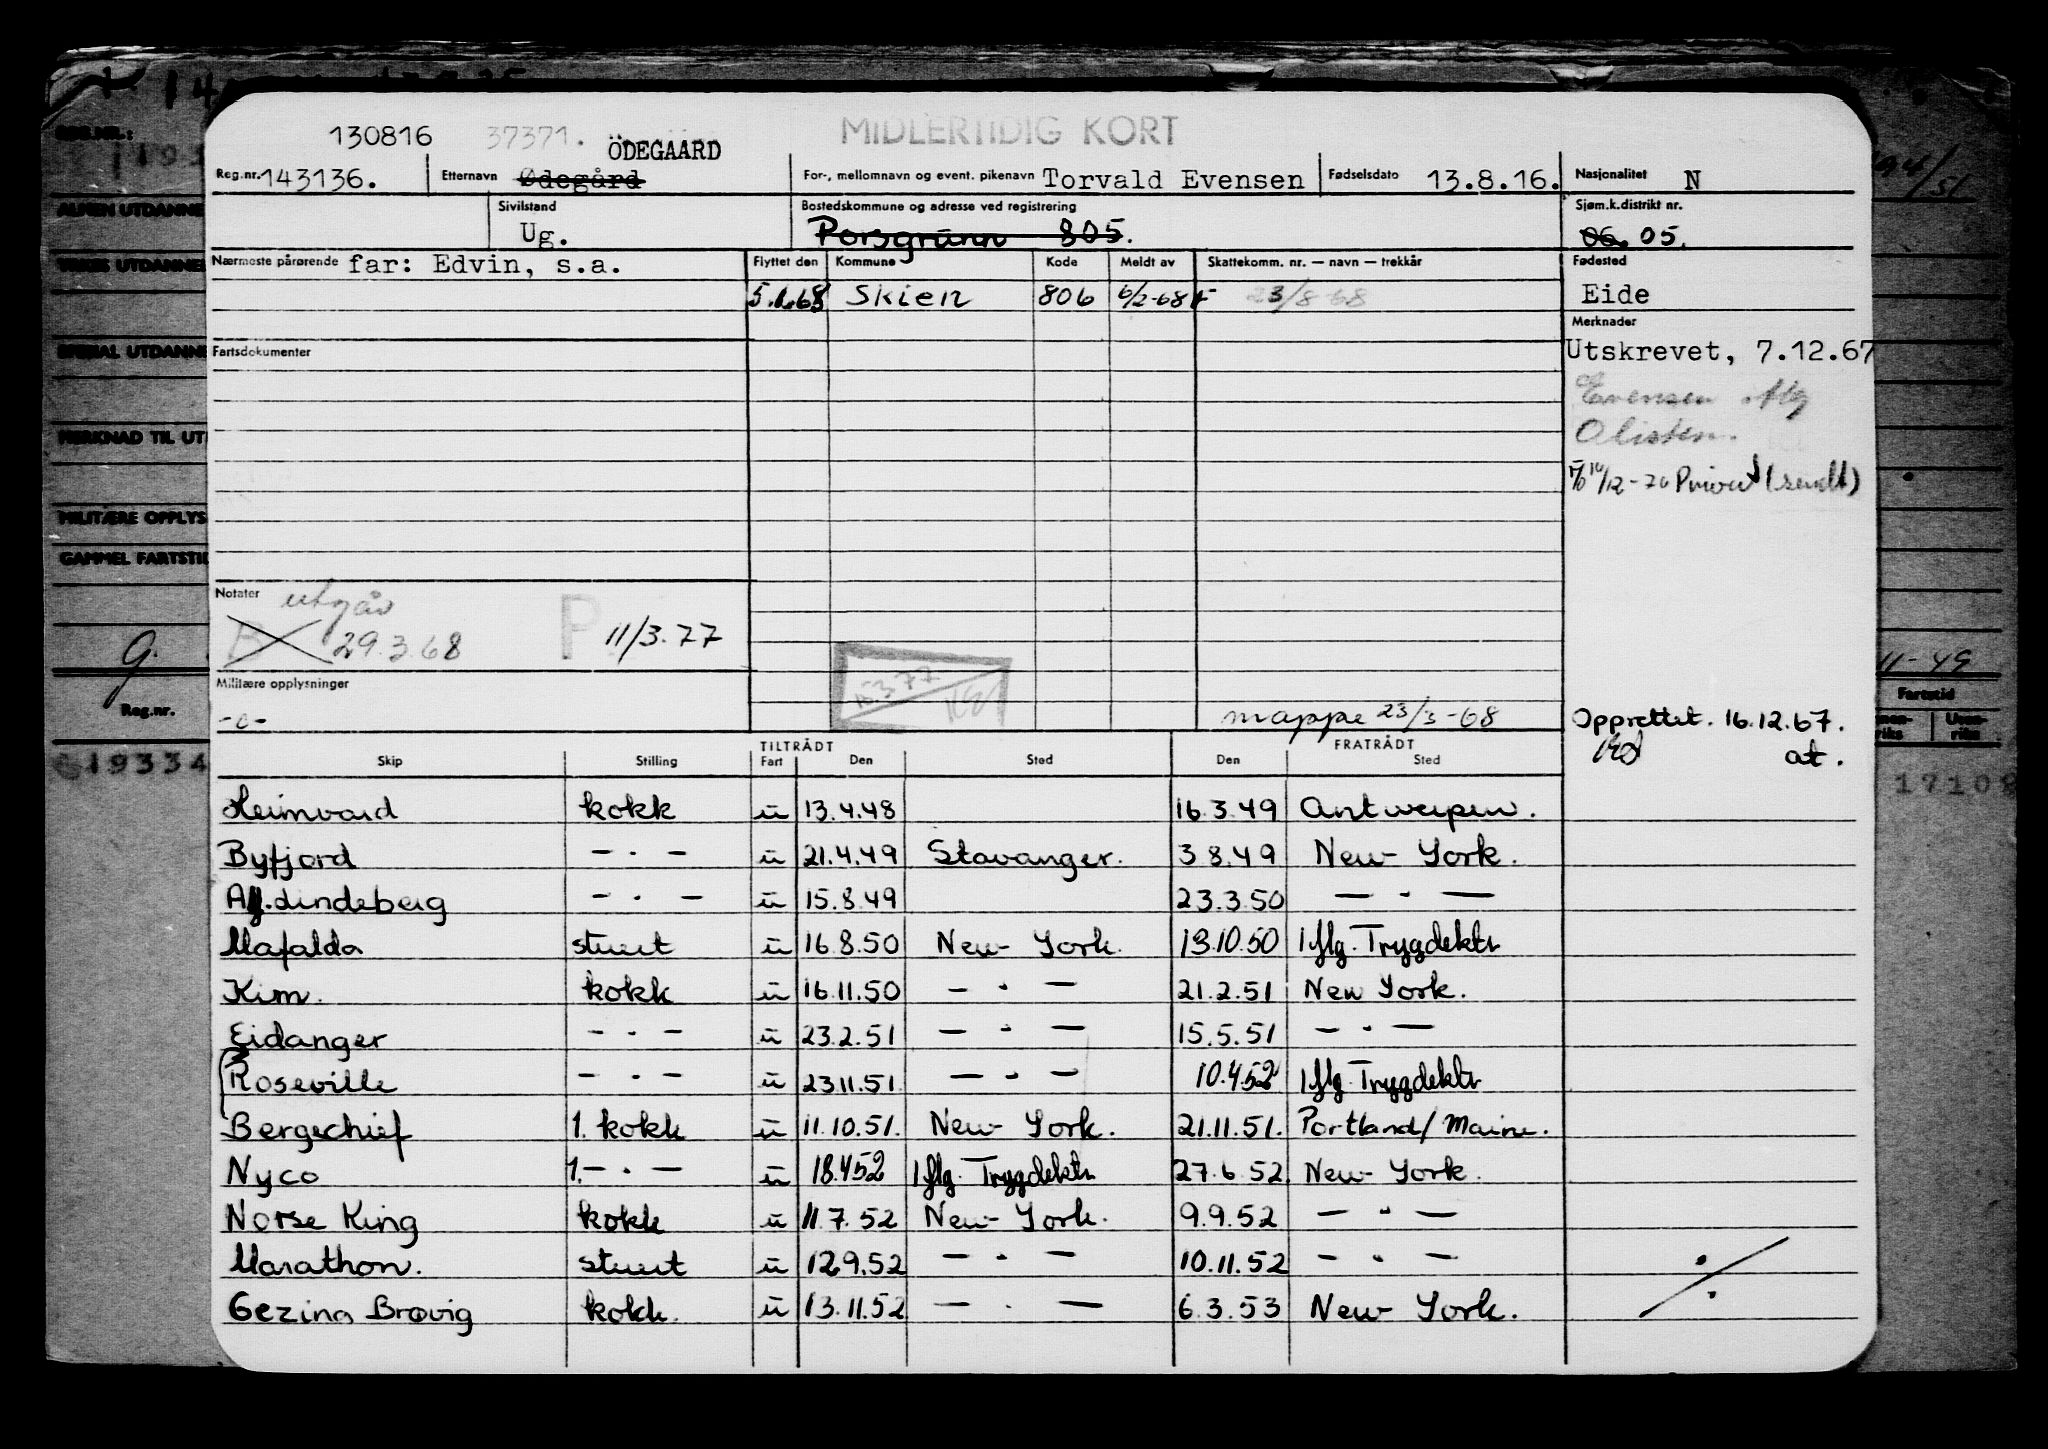 130816 37371. ÖDEGAARD MIDLERTIDIG KORT
Reg.nr. 143136. Etternavn Ødegård For-, mellomnavn og event. pikenavn Torvald Evensen Fødselsdato 13.8.16. Nasjonalitet N
Sivilstand Ug. Bostedskommune og adresse ved registrering Porsgrunn 805. Sjøm.k.distrikt nr. 06. 05.
Nærmeste pårørende far: Edvin, s.a. Flyttet den Kommune Kode Meldt av Skattekomm. nr. — navn — trekkår Fødested
Skien 806 6/2-68 23/8 68 Eide
Merknader
Fartsdokumenter Utskrevet, 7.12.67
Evensen iflg
Olisten.
(sendt)
Notater utgår
B 29.3.68 P 11/3.77
Militære opplysninger
-o- mappe 23/3-68 Opprettet. 16.12.67.
at.
TILTRÅDT FRATRÅDT
Skip Stilling Fart Den Sted Den Sted
Heimvard kokk u 13.4.48 16.3.49 Antwerpen.
Byfjord — · — u 21.4.49 Stavanger. 3 8.49 New York.
Lindeberg — · — u 15.8.49 23.3.50 — · —
Mafalda stuert u 16.8.50 New York. 13.10.50 iflg. Trygdektr
Kim. kokk u 16.11.50 — · — 21.2.51 New York.
Eidanger — · — u 23.2.51 — · — 15.5.51 — · —
Roseville — · — u 23.11.51 — · — 10.4.52 iflg. Trygdektr
Bergechief 1. kokk u 11.10.51. New York. 21.11.51. Portland/Maine.
Nyco 1.— · — u 18.4.52 iflg. Trygdektr 27.6.52 New York.
Norse King kokk u 11.7.52 New York. 9.9.52 — · —
Marathon. stuert u 12.9.52 — · — 10.11.52 — · —
Gezina Brøvig kokk. u 13.11.52 — · — 6.3.53 New York.
ALMEN UTDANNE
MERKNAD TIL UT
MILITÆRE OPPLYS
GAMMEL FARTSTI
Reg.nr.
19334
11-49
Fartstid
17108